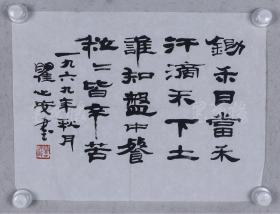 鋤禾日當禾
汗滴禾下土
誰知盤中餐
粒〻皆辛苦
一九六九年秋月
瞿 安書